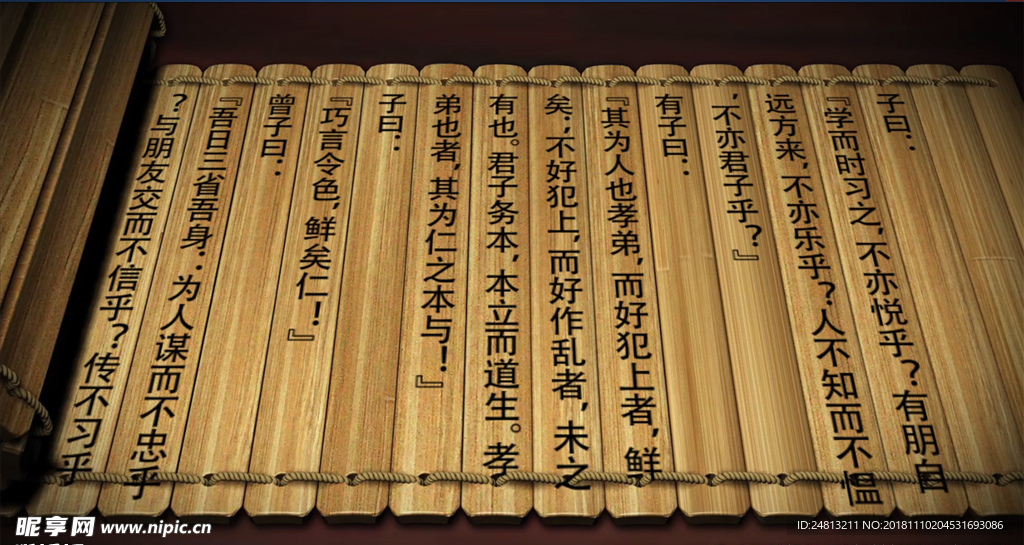 子曰：
『学而时习之，不亦悦乎？有朋自
远方来，不亦乐乎？人不知而不愠
，不亦君子乎？』
有子曰：
『其为人也孝弟，而好犯上者，鲜
矣；不好犯上，而好作乱者，未之
有也。君子务本，本立而道生。孝
弟也者，其为仁之本与！』
子曰：
『巧言令色，鲜矣仁！』
曾子曰：
『吾日三省吾身：为人谋而不忠乎
？与朋友交而不信乎？传不习乎
昵享网 www.nipic.cn
ID:24813211 NO:20181110204531693086